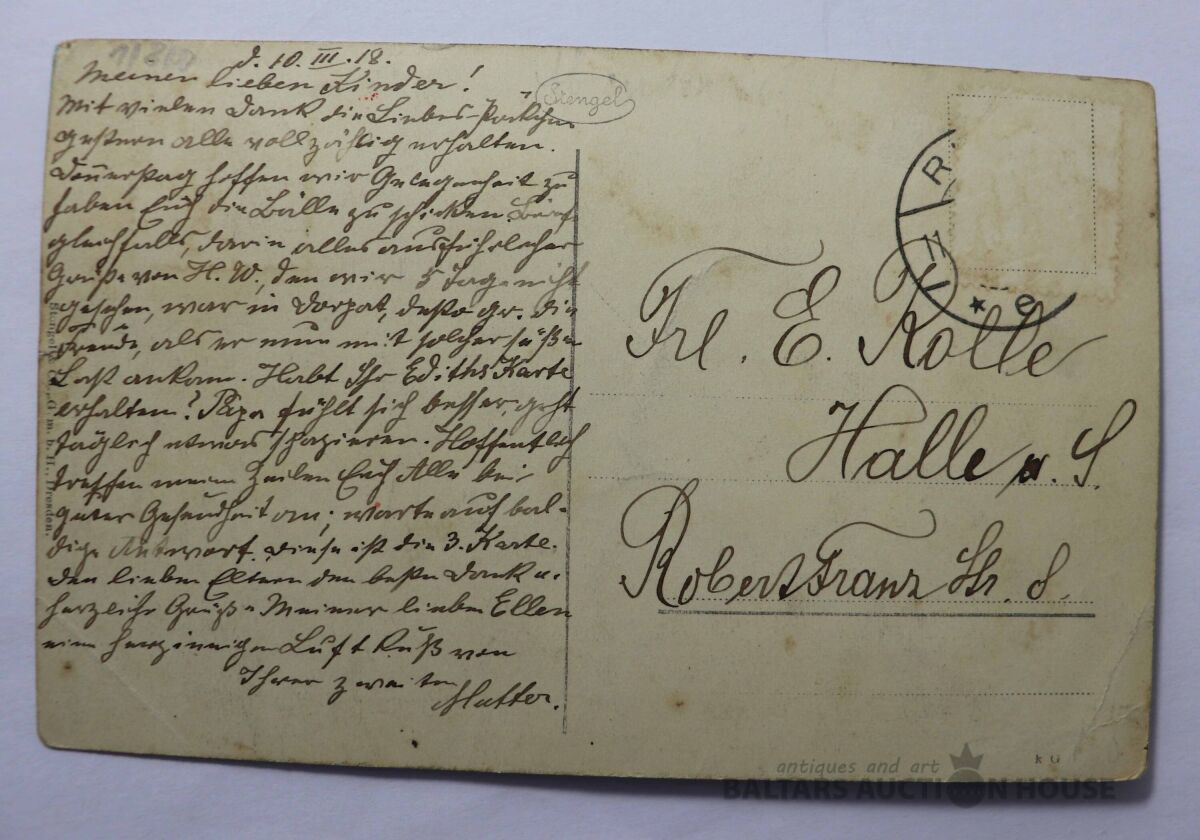 d. 10. III. 18.
Meine lieben Kinder!
Mit vielen Dank die Liebes-Päckchen
gestern alle vollzählig erhalten.
Donnerstag hoffen wir Gelegenheit zu
haben Euch die Bälle zu schicken
gleichfalls, darin alles ausführlicher
Grüße von H. W., den wir 5 Tage nicht
gesehen, war in Dorpat, desto gr. die
Freude, als er nun mit solcher süßen
Last ankam. Habt Ihr Ediths Karte
erhalten? Papa fühlt sich besser, geht
täglich etwas spazieren. Hoffentlich
treffen meine Zeilen Euch Alle bei
guter Gesundheit an; warte auf bal-
dige Antwort. Diese ist die 3. Karte.
Den lieben Eltern den besten Dank u.
herzliche Grüße Meiner lieben Ellen
einen herzinnigen Luft Kuß von
Ihrer zweiten
Mutter.
Stengel
G. m. b. H., Dresden.
R
Frl. E. Rolle
Halle a. S.
Robert Franz Str. 8.
k G
antiques and art
BALTARS AUCTION HOUSE